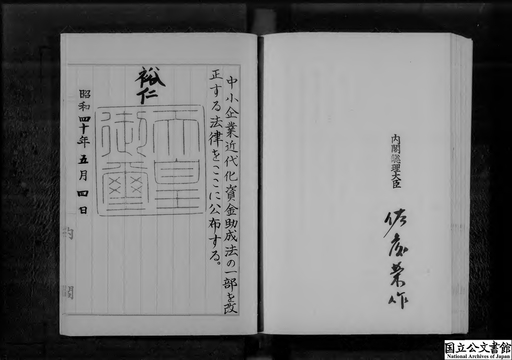 中小企業近代化資金助成法の一部を改
正する法律をここに公布する。
裕仁
天皇
御璽
昭和四十年五月四日
内閣
内閣総理大臣
佐藤榮作
国立公文書館
National Archives of Japan